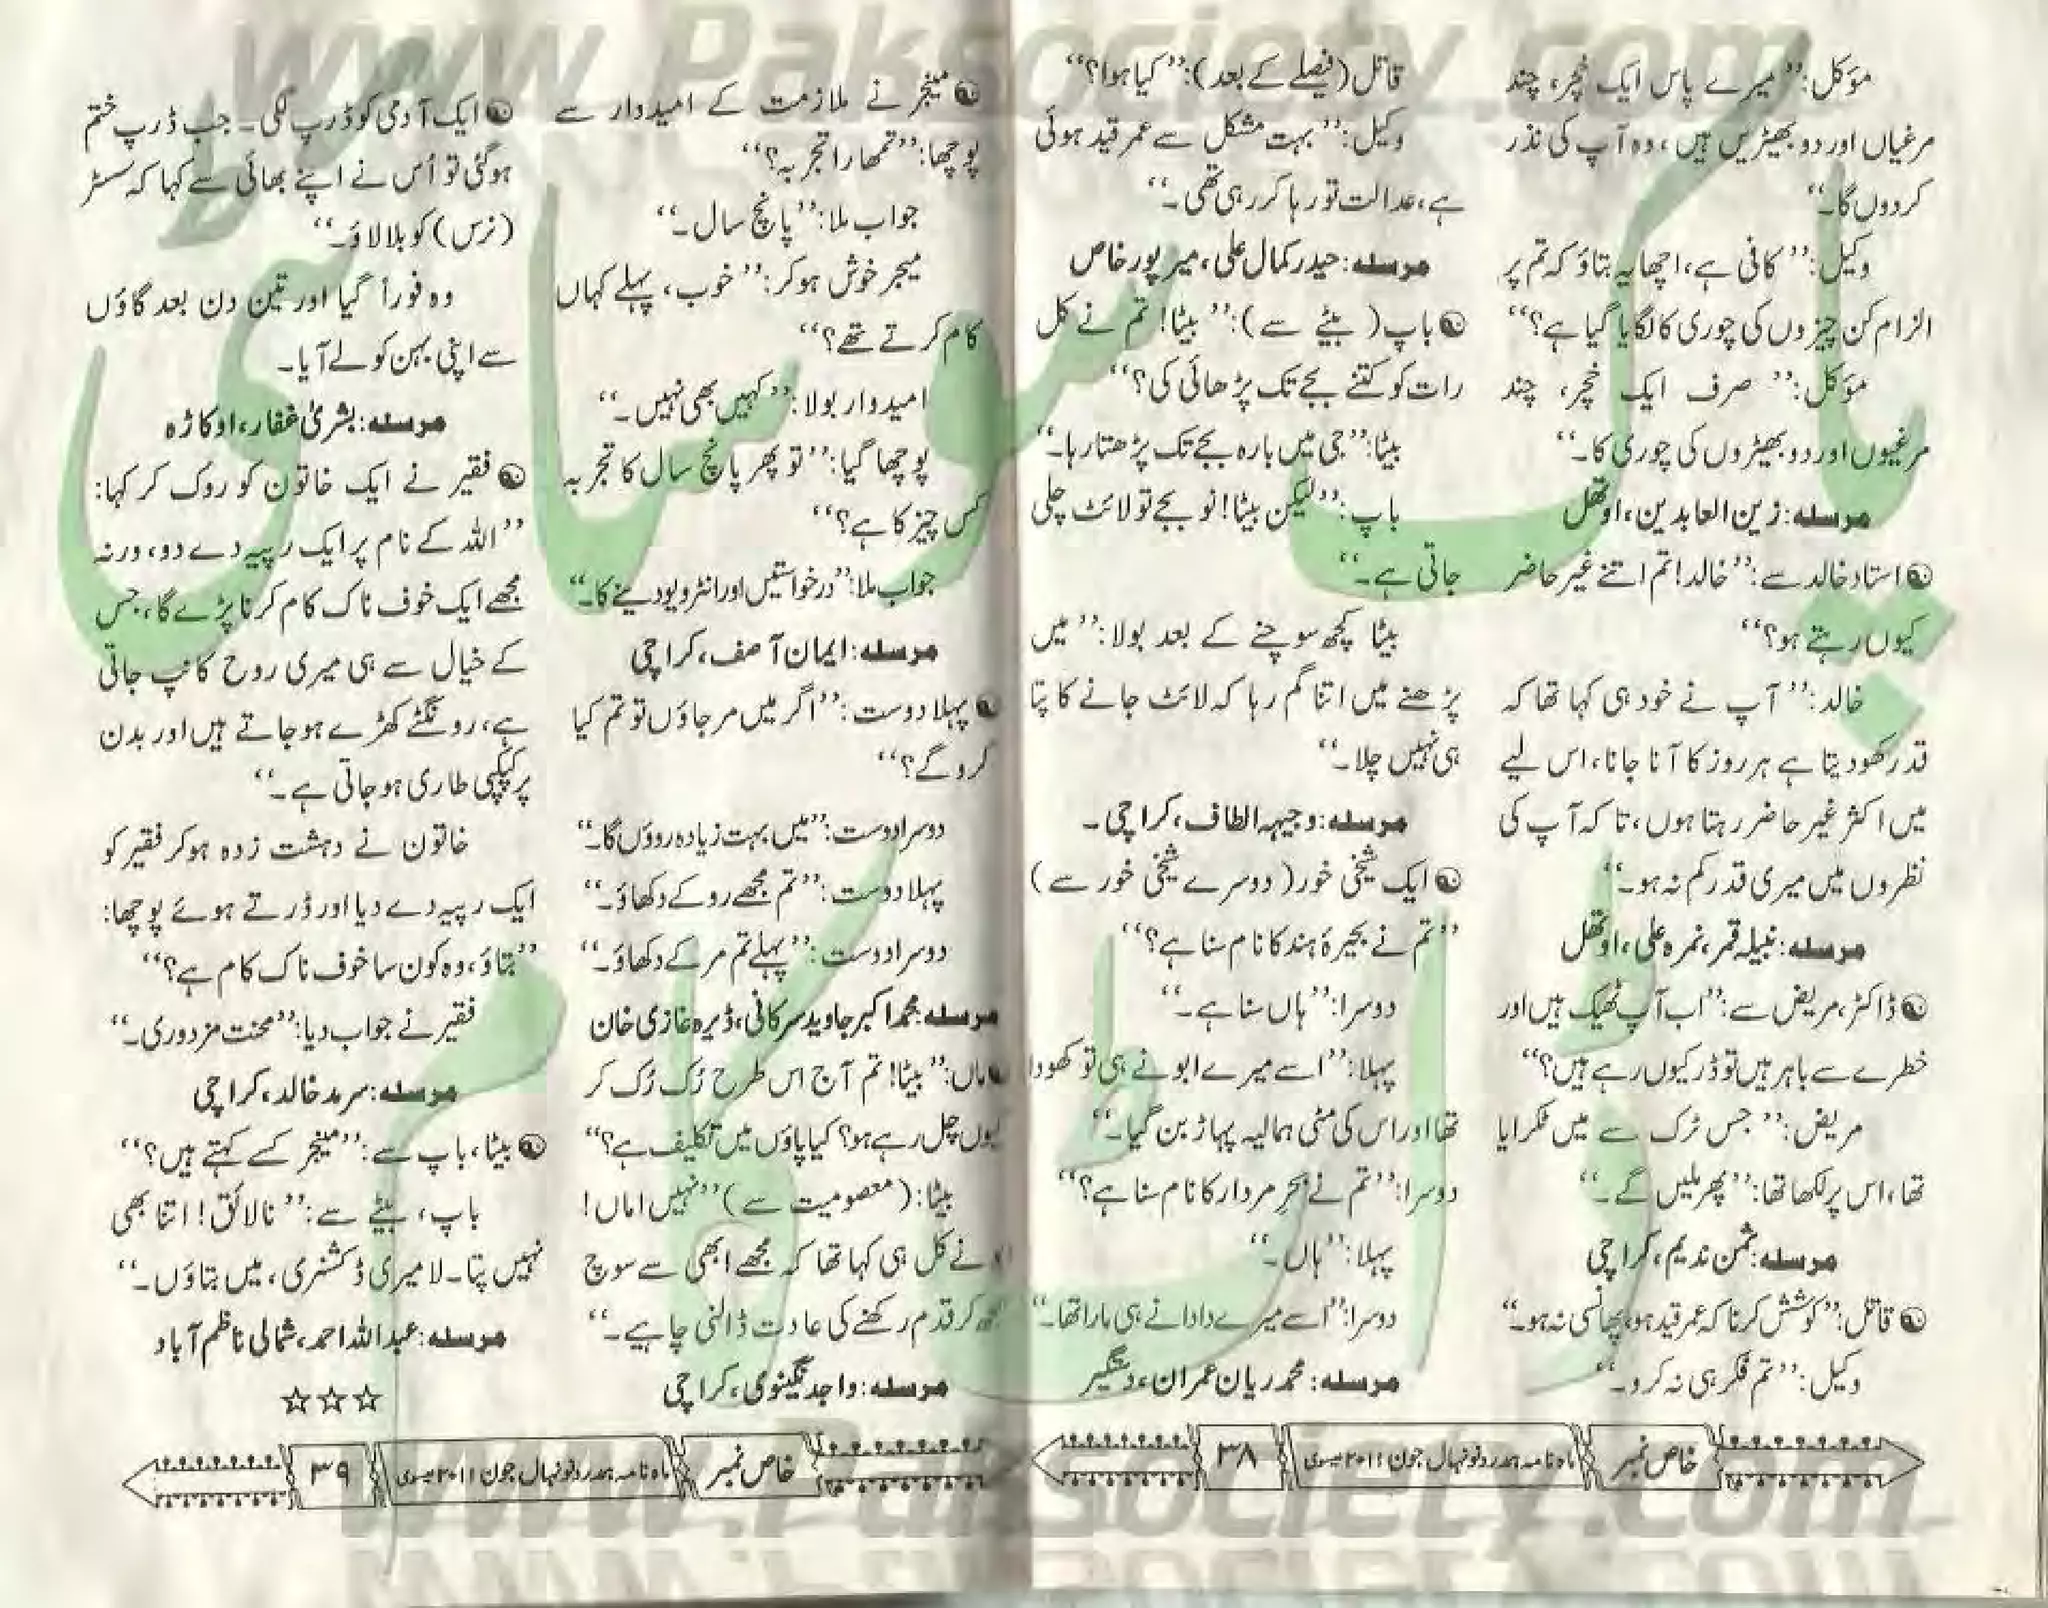 مؤکل: ’’میرے پاس ایک خچر، چند
مرغیاں اور دو بھیڑیں ہیں، وہ آپ کی نذر
کر دوں گا۔‘‘
وکیل: ’’کافی ہے، اچھا یہ بتاؤ کہ تم پر
الزام کن چیزوں کی چوری کا لگایا گیا ہے؟‘‘
مؤکل: ’’صرف ایک خچر، چند
مرغیوں اور دو بھیڑوں کی چوری کا۔‘‘
مرسلہ: زین العابدین، اوتھل
استاد خالد سے: ’’خالد! تم اتنے غیر حاضر
کیوں رہتے ہو؟‘‘
خالد: ’’آپ نے خود ہی کہا تھا کہ
قدر کھو دیتا ہے ہر روز کا آنا جانا، اس لیے
میں اکثر غیر حاضر رہتا ہوں، تا کہ آپ کی
نظروں میں میری قدر کم نہ ہو۔‘‘
مرسلہ: نبیلہ قمر، نمرہ علی، اوتھل
ڈاکٹر، مریض سے: ’’اب آپ ٹھیک ہیں اور
خطرے سے باہر ہیں تو ڈر کیوں رہے ہیں؟‘‘
مریض: ’’جس ٹرک سے میں ٹکرایا
تھا، اس پر لکھا تھا: ’’پھر ملیں گے۔‘‘
مرسلہ: ثمن ندیم، کراچی
قاتل: ’’کوشش کرنا کہ عمر قید ہو، پھانسی نہ ہو۔‘‘
وکیل: ’’تم فکر ہی نہ کرو۔‘‘
قاتل (فیصلے کے بعد): ’’کیا ہوا؟‘‘
وکیل: ’’بہت مشکل سے عمر قید ہوئی
ہے، عدالت تو رہا کر رہی تھی۔‘‘
مرسلہ: حیدر کمال علی، میر پور خاص
باپ (بیٹے سے): ’’بیٹا! تم نے کل
رات کو کتنے بجے تک پڑھائی کی؟‘‘
بیٹا: ’’جی میں بارہ بجے تک پڑھتا رہا۔‘‘
باپ: ’’لیکن بیٹا! نو بجے تو لائٹ چلی
جاتی ہے۔‘‘
بیٹا کچھ سوچنے کے بعد بولا: ’’میں
پڑھنے میں اتنا گم رہا کہ لائٹ جانے کا پتا
ہی نہیں چلا۔‘‘
مرسلہ: وجیہہ الطاف، کراچی۔
ایک شیخی خور (دوسرے شیخی خور سے)
’’تم نے بحیرۂ ہند کا نام سنا ہے؟‘‘
دوسرا: ’’ہاں سنا ہے۔‘‘
پہلا: ’’اسے میرے ابو نے ہی تو کھودا
تھا اور اس کی مٹی ہمالیہ پہاڑ بن گیا۔‘‘
دوسرا: ’’تم نے بحرِ مردار کا نام سنا ہے؟‘‘
پہلا: ’’ہاں۔‘‘
دوسرا: ’’اسے میرے دادا نے ہی مارا تھا۔‘‘
مرسلہ: محمد ریان عمران، دستگیر
خاص نمبر ماہ نامہ ہمدرد نونہال جون ۲۰۱۱ عیسوی ۳۸
مینجر نے ملازمت کے امیدوار سے
پوچھا: ’’تمھارا تجربہ؟‘‘
جواب ملا: ’’پانچ سال۔‘‘
میجر خوش ہو کر: ’’خوب، پہلے کہاں
کام کرتے تھے؟‘‘
امیدوار بولا: ’’کہیں بھی نہیں۔‘‘
پوچھا گیا: ’’تو پھر پانچ سال کا تجربہ
کس چیز کا ہے؟‘‘
جواب ملا: ’’درخواستیں اور انٹرویو دینے کا۔‘‘
مرسلہ: ایمان آصف، کراچی
پہلا دوست: ’’اگر میں مر جاؤں تو تم کیا
کرو گے؟‘‘
دوسرا دوست: ’’میں بہت زیادہ روؤں گا۔‘‘
پہلا دوست: ’’تم مجھے رو کے دکھاؤ۔‘‘
دوسرا دوست: ’’پہلے تم مر کے دکھاؤ۔‘‘
مرسلہ: محمد اکبر جاوید سرکانی، ڈیرہ غازی خان
ماں: ’’بیٹا! تم آج اس طرح رُک رُک کر
کیوں چل رہے ہو؟ کیا پاؤں میں تکلیف ہے؟‘‘
بیٹا: (معصومیت سے) ’’نہیں اماں!
نے کل ہی کہا تھا کہ مجھے ابھی سے سوچ
کر قدم رکھنے کی عادت ڈالنی چاہیے۔‘‘
مرسلہ: واجد نگینوی، کراچی
ایک آدمی کو ڈرپ لگی۔ جب ڈرپ ختم
ہوگئی تو اُس نے اپنے بھائی سے کہا کہ سسٹر
(نرس) کو بلا لاؤ۔‘‘
وہ فوراً گیا اور تین دن بعد گاؤں
سے اپنی بہن کو لے آیا۔
مرسلہ: بشریٰ غفار، اوکاڑہ
فقیر نے ایک خاتون کو روک کر کہا:
’’اللہ کے نام پر ایک رپیہ دے دو، ورنہ
مجھے ایک خوف ناک کام کرنا پڑے گا، جس
کے خیال سے ہی میری روح کانپ جاتی
ہے، رونگٹے کھڑے ہو جاتے ہیں اور بدن
پر کپکپی طاری ہو جاتی ہے۔‘‘
خاتون نے دہشت زدہ ہو کر فقیر کو
ایک رپیہ دے دیا اور ڈرتے ہوئے پوچھا:
’’بتاؤ، وہ کون سا خوف ناک کام ہے؟‘‘
فقیر نے جواب دیا: ’’محنت مزدوری۔‘‘
مرسلہ: سرمد خالد، کراچی
بیٹا، باپ سے: ’’مینجر کسے کہتے ہیں؟‘‘
باپ، بیٹے سے: ’’نالائق! اتنا بھی
نہیں پتا۔ لا میری ڈکشنری، میں بتاؤں۔‘‘
مرسلہ: عبداللہ احمد، شمالی ناظم آباد
☆☆☆
خاص نمبر ماہ نامہ ہمدرد نونہال جون ۲۰۱۱ عیسوی ۳۹
www.Paksociety.com
پاک سوسائٹی ڈاٹ کام
www.Paksociety.com